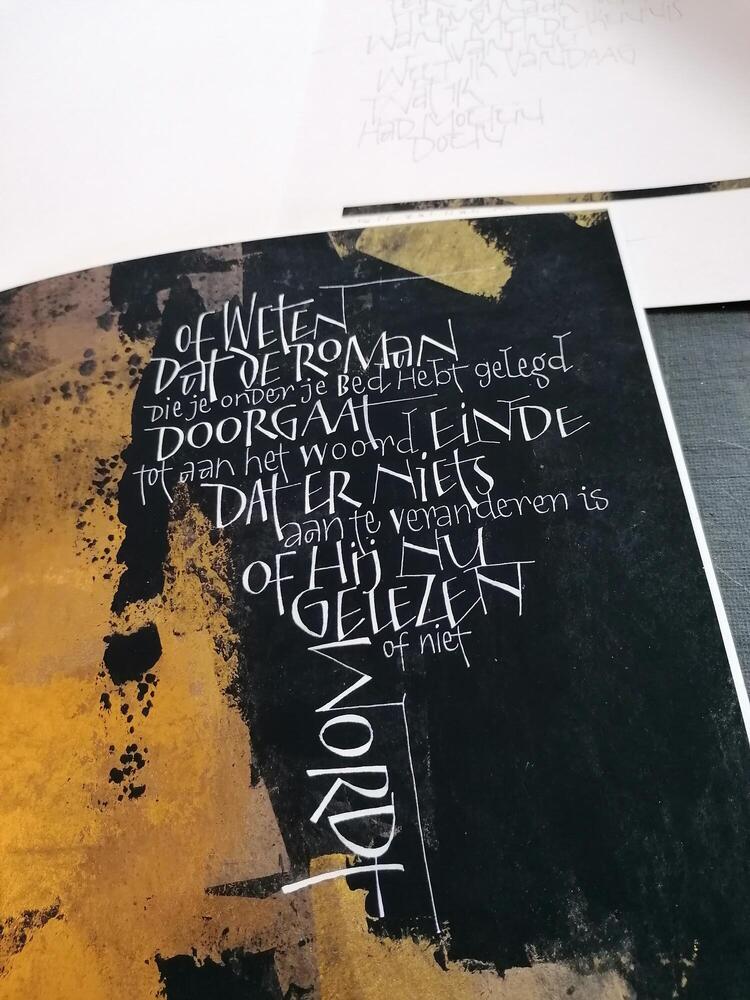 WANT MET DE KENNIS
VAN
WEET IK VANDAAG
WAT IK
HAD MOETEN
DOEN
of WETEN
Dat DE ROMAN
Die je onder je Bed Hebt gelegd
DOORGAAT
tot aan het woord EiNDE
DAT ER Niets
aan te veranderen is
OF Hij NU
GELEZEN
of niet
WORDT